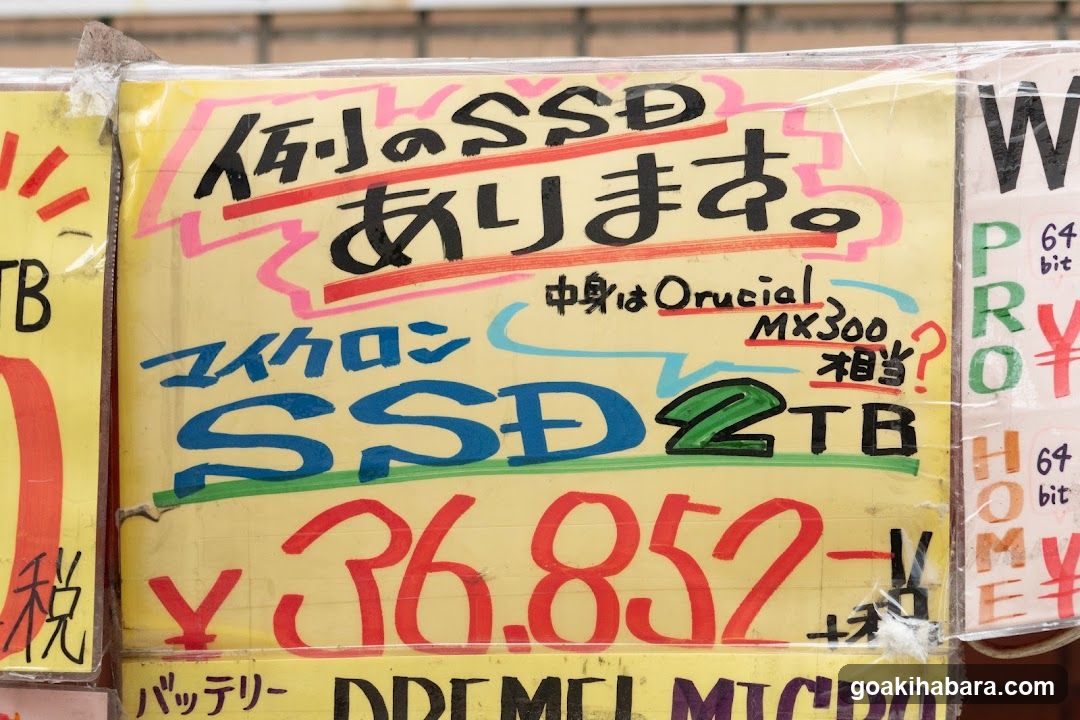 例のSSD
あります。
中身はOrucial
MX300
相当?
マイクロン
SSD 2TB
¥36,852-
+税
バッテリー
DREMEL MICRO
TB
税
W
PRO
64
bit
¥
HOME
64
bit
¥
goakihabara.com